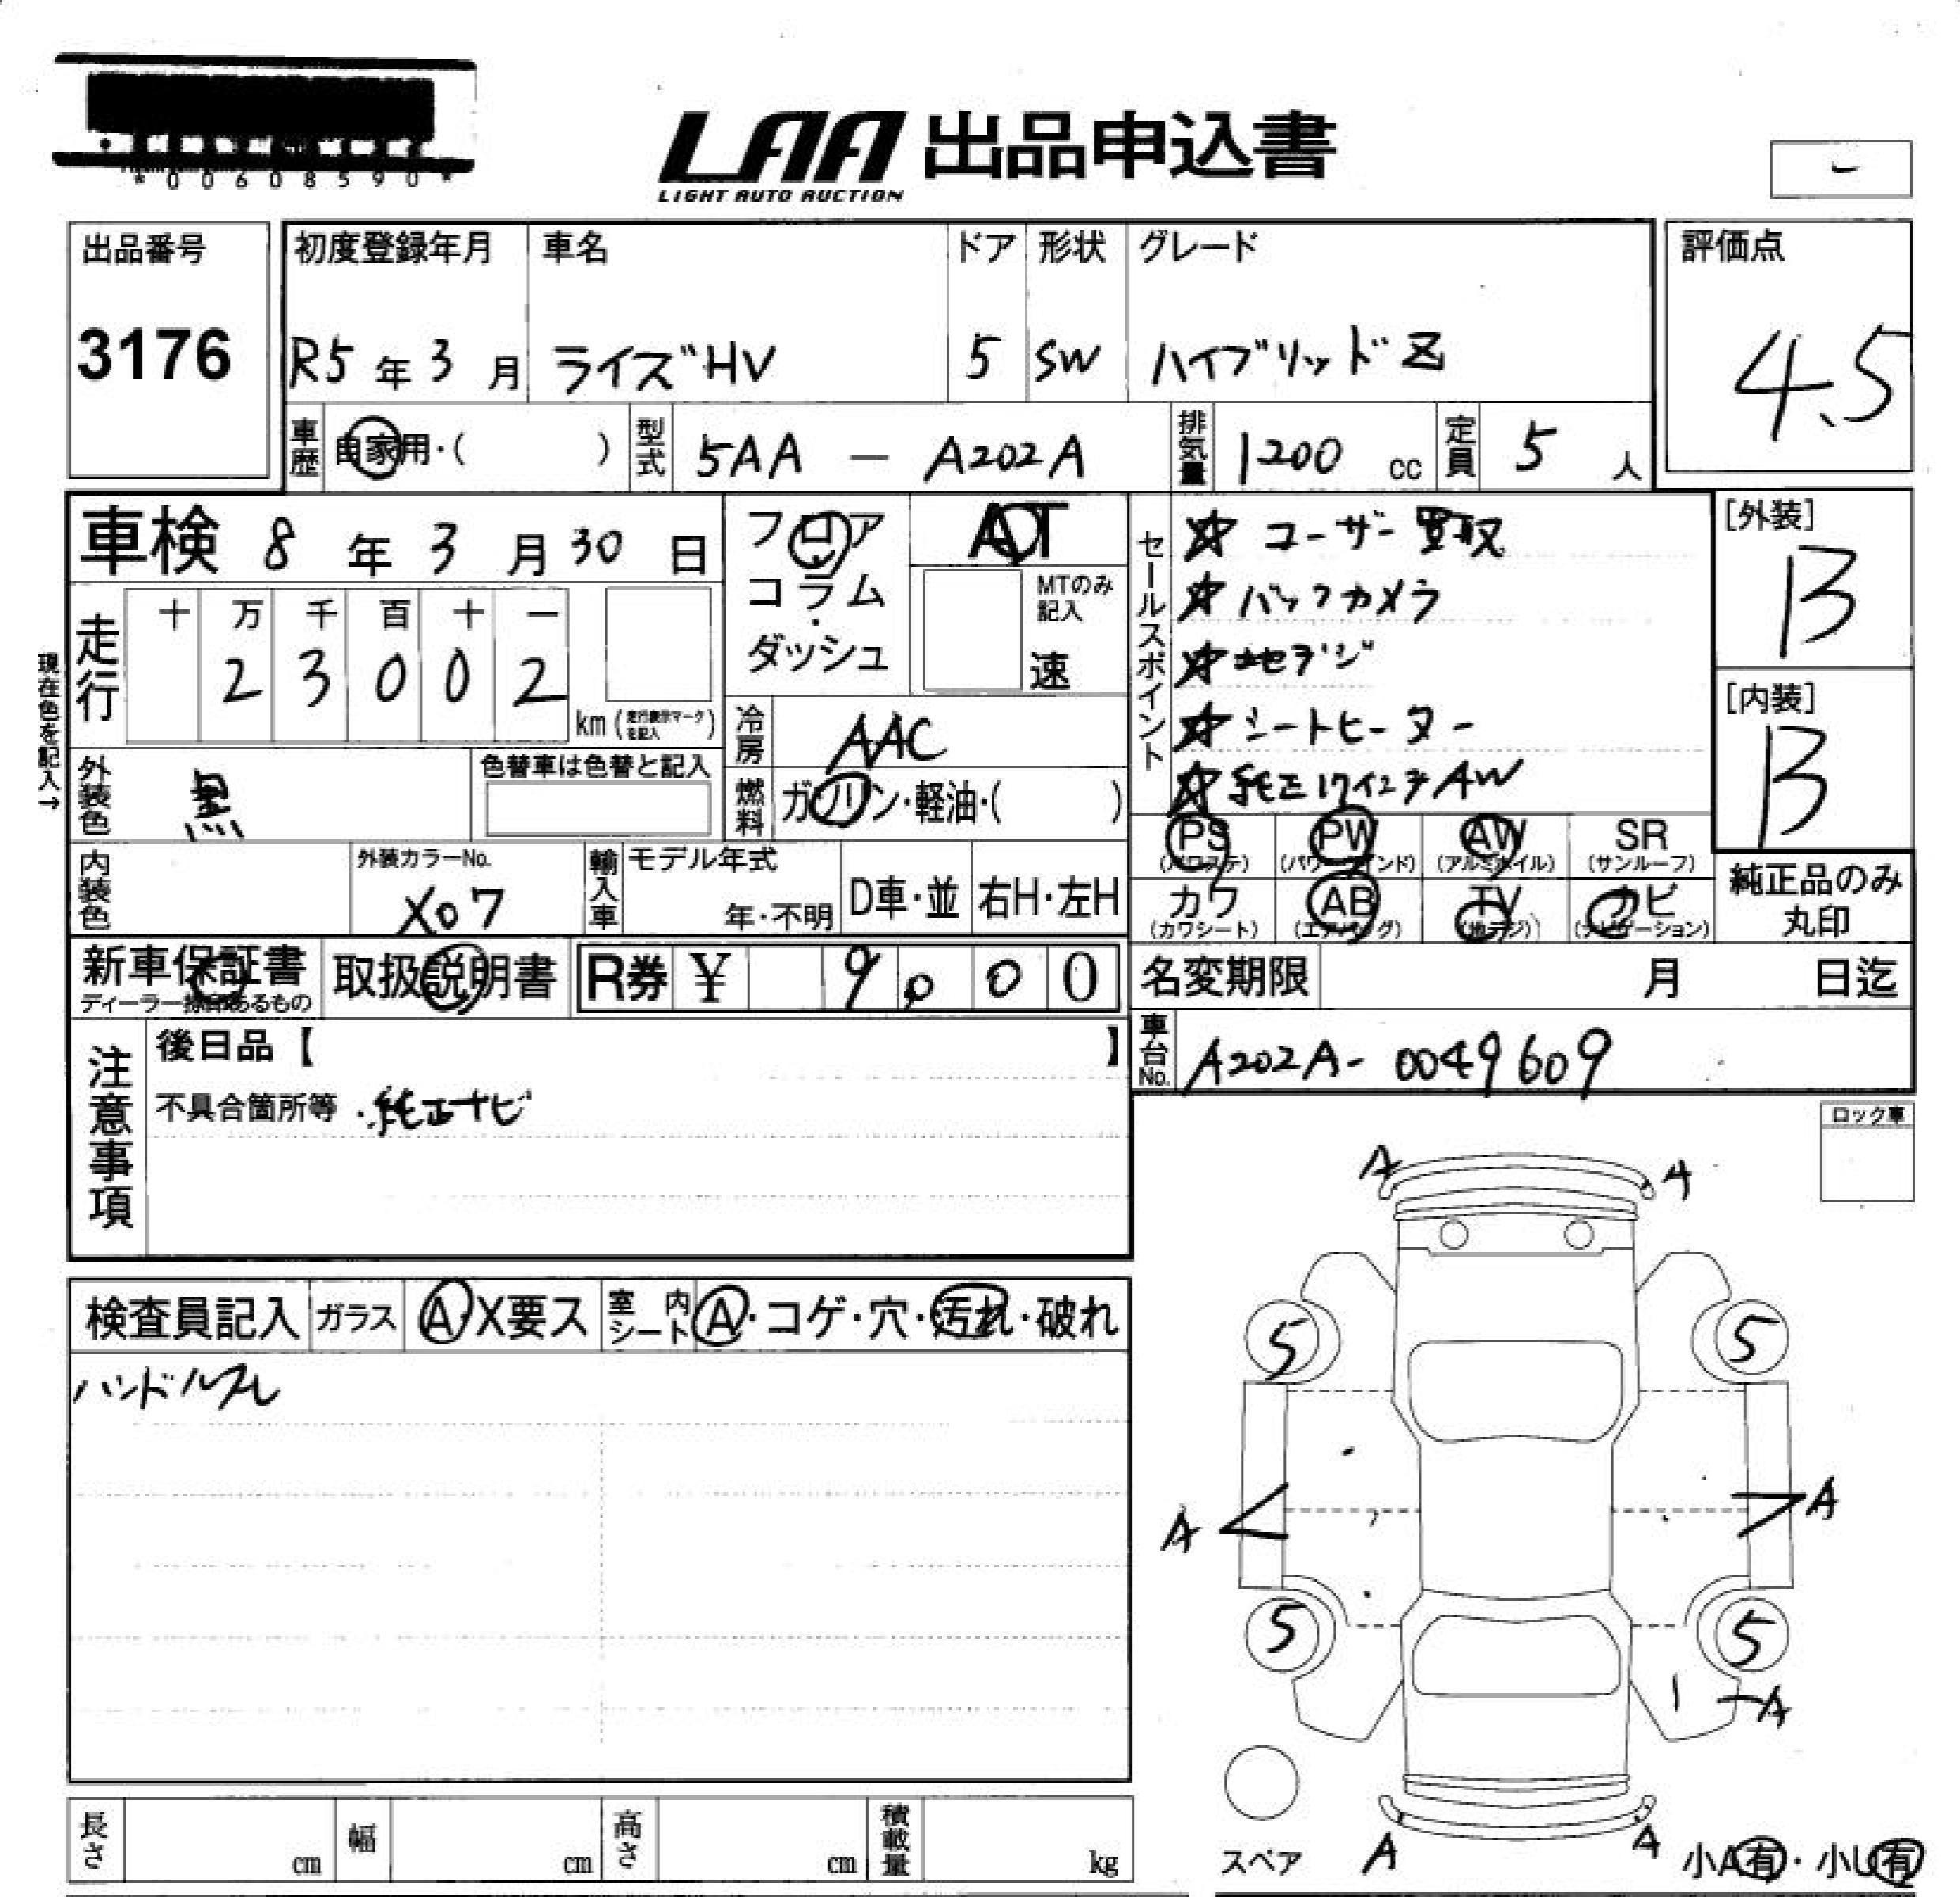 *00608590*
LAA 出品申込書
LIGHT AUTO AUCTION
出品番号
3176
初度登録年月 車名 ドア 形状 グレード
R5年3月 ライズHV 5 SW ハイブリッドZ
評価点
4.5
車歴 自家用・( ) 型式 5AA — A202A 排気量 1200 cc 定員 5 人
車検 8年3月30日
フロア
コラム
・
ダッシュ
AT
MTのみ記入
速
セールスポイント
☆ ユーザー買取
☆ バックカメラ
☆ デジ
☆ シートヒーター
☆ 純正17インチAW
[外装]
B
[内装]
B
現在色を記入→
走行
十 万 千 百 十 一
2 3 0 0 2
km(走行表示マークを記入)
冷房 AAC
外装色 黒
色替車は色替と記入
燃料 ガソリン・軽油・( )
PS (パワステ) PW (パワーウインド) AW (アルミホイル) SR (サンルーフ)
カワ (カワシート) AB (エアバッグ) TV (地デジ) ナビ (ナビゲーション)
純正品のみ
丸印
内装色
外装カラーNo.
X07
輸入車 モデル年式
年・不明
D車・並 右H・左H
新車保証書
ディーラー捺印あるもの
取扱説明書 R券 ¥ 9,000
名変期限 月 日迄
車台No. A202A-0049609
注意事項
後日品【 】
不具合箇所等 ・純正ナビ
ロック車
検査員記入 ガラス A・X要ス 室内シート A・コゲ・穴・汚れ・破れ
ハンドルスレ
A A
5 5
A A
5 5
A
A A
スペア
小A有・小U有
長さ cm 幅 cm 高さ cm 積載量 kg